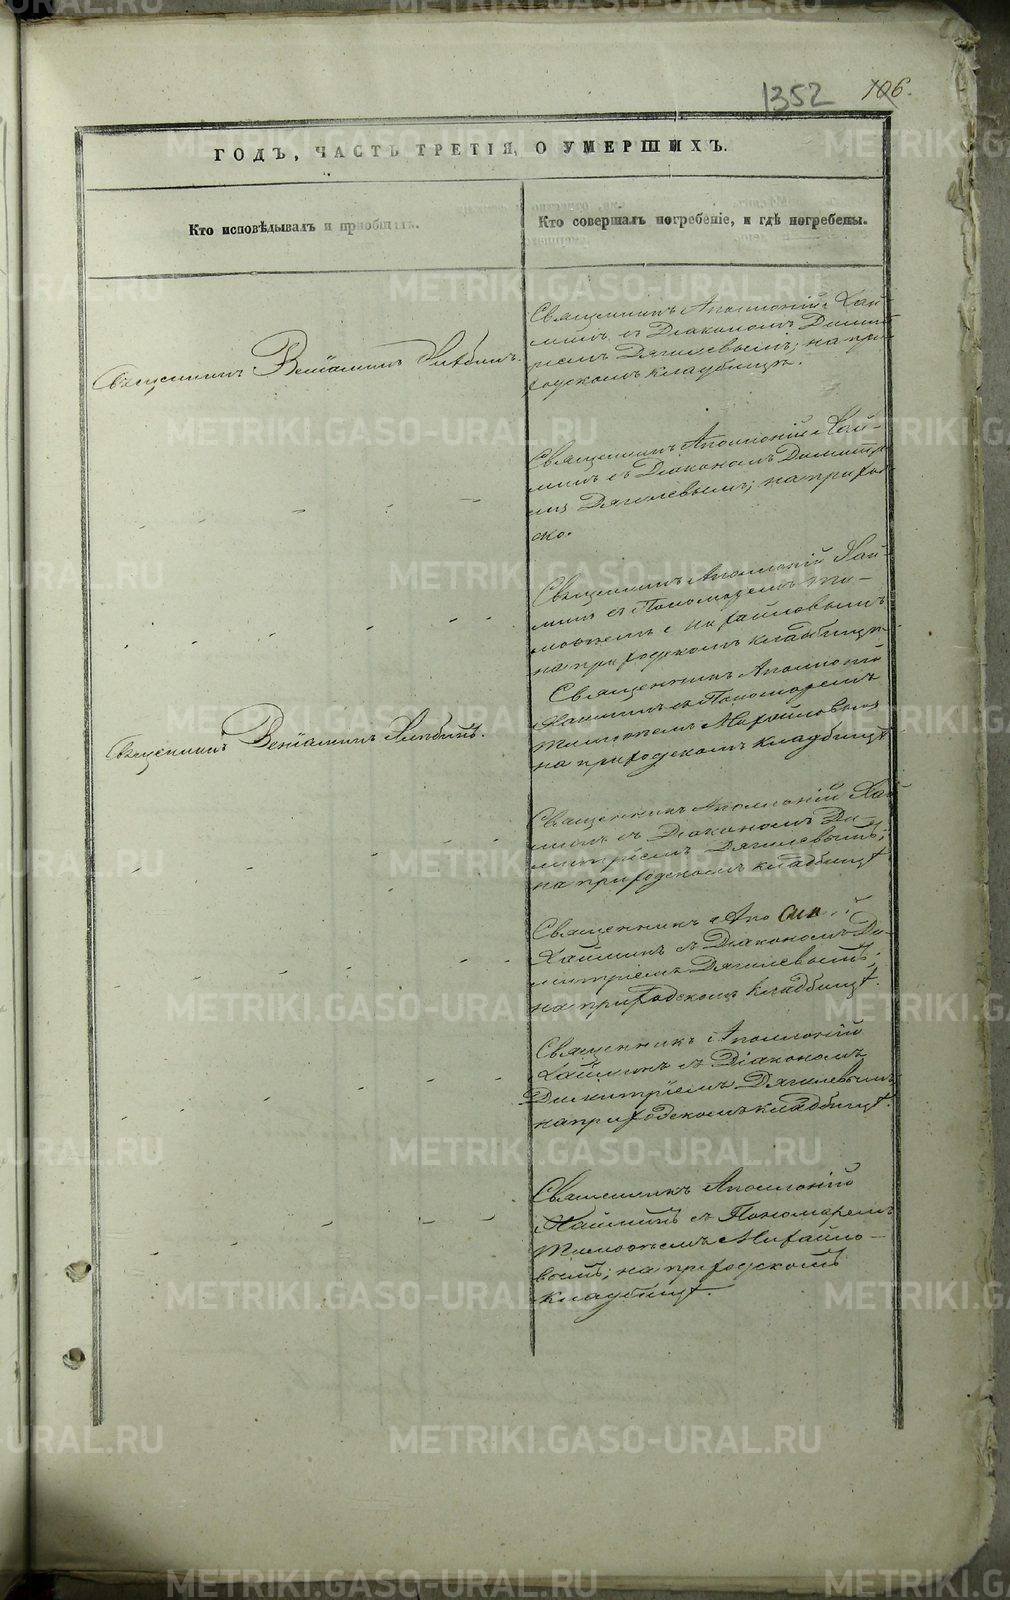 1352 106.
ГОДЪ, ЧАСТЬ ТРЕТІЯ, О УМЕРШИХЪ.
Кто исповѣдывалъ и пріобщалъ.
Кто совершалъ погребеніе, и гдѣ погребены.
Священникъ Веніаминъ
Священникъ Аполлоній Хай-
минъ съ Діакономъ Димит
ріемъ Дягилевымъ; на при
ходскомъ кладбищѣ.
Священникъ Аполлоній Хай-
минъ съ Діакономъ Димитрі
емъ Дягилевымъ; на приход
ско.
Священникъ Аполлоній Хай-
минъ съ Пономаремъ Ти-
моѳеемъ Михайловымъ
на приходскомъ кладбищѣ
Священникъ Веніаминъ
Священникъ Аполлоній
Хайминъ съ Пономаремъ
Тимоѳеемъ Михайловымъ
на приходскомъ кладбищѣ
Священникъ Аполлоній Хай
минъ съ Діакономъ Ди-
митріемъ Дягилевымъ;
на приходскомъ кладбищѣ
Священникъ Аполлоній
Хайминъ съ Діакономъ Ди-
митріемъ Дягилевымъ;
на приходскомъ кладбищѣ.
Священникъ Аполлоній
Хайминъ съ Діакономъ
Димитріемъ Дягилевымъ
на приходскомъ кладбищѣ.
Священникъ Аполлоній
Хайминъ съ Пономаремъ
Тимоѳеемъ Михайло-
вымъ; на приходскомъ
кладбищѣ.
METRIKI.GASO-URAL.RU